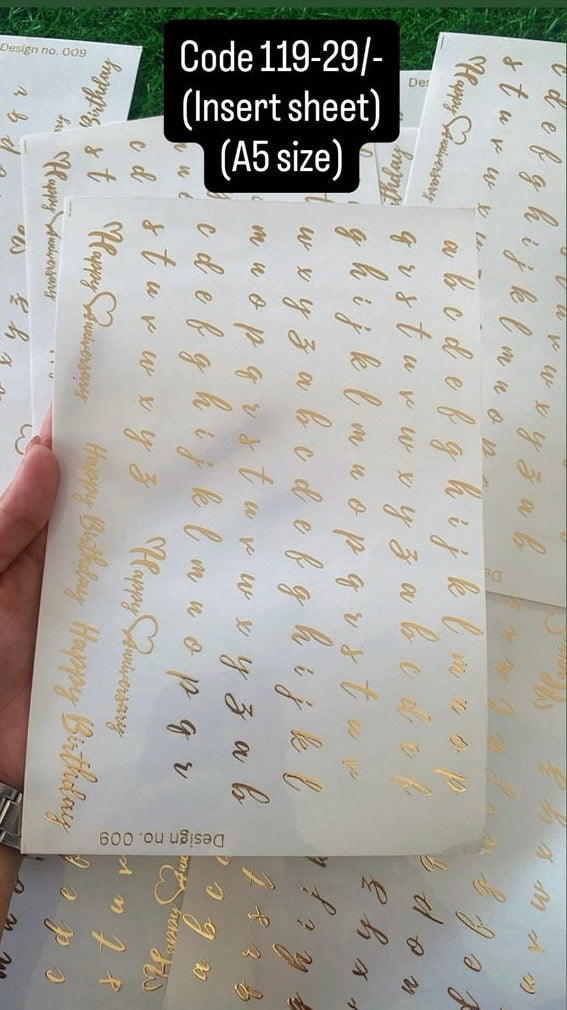 Code 119-29/-
(Insert sheet)
(A5 size)
a b c d e f g h i j k l m n o p
q r s t u v w x y z a b c d e f
g h i j k l m n o p q r s t u v
w x y z a b c d e f g h i j k l
m n o p q r s t u v w x y z a b
c d e f g h i j k l m n o p q r
s t u v w x y z Happy Anniversary
Happy Anniversary Happy Birthday Happy Birthday
Design no. 009
Design no. 009
Birthday
Happy Anniversary